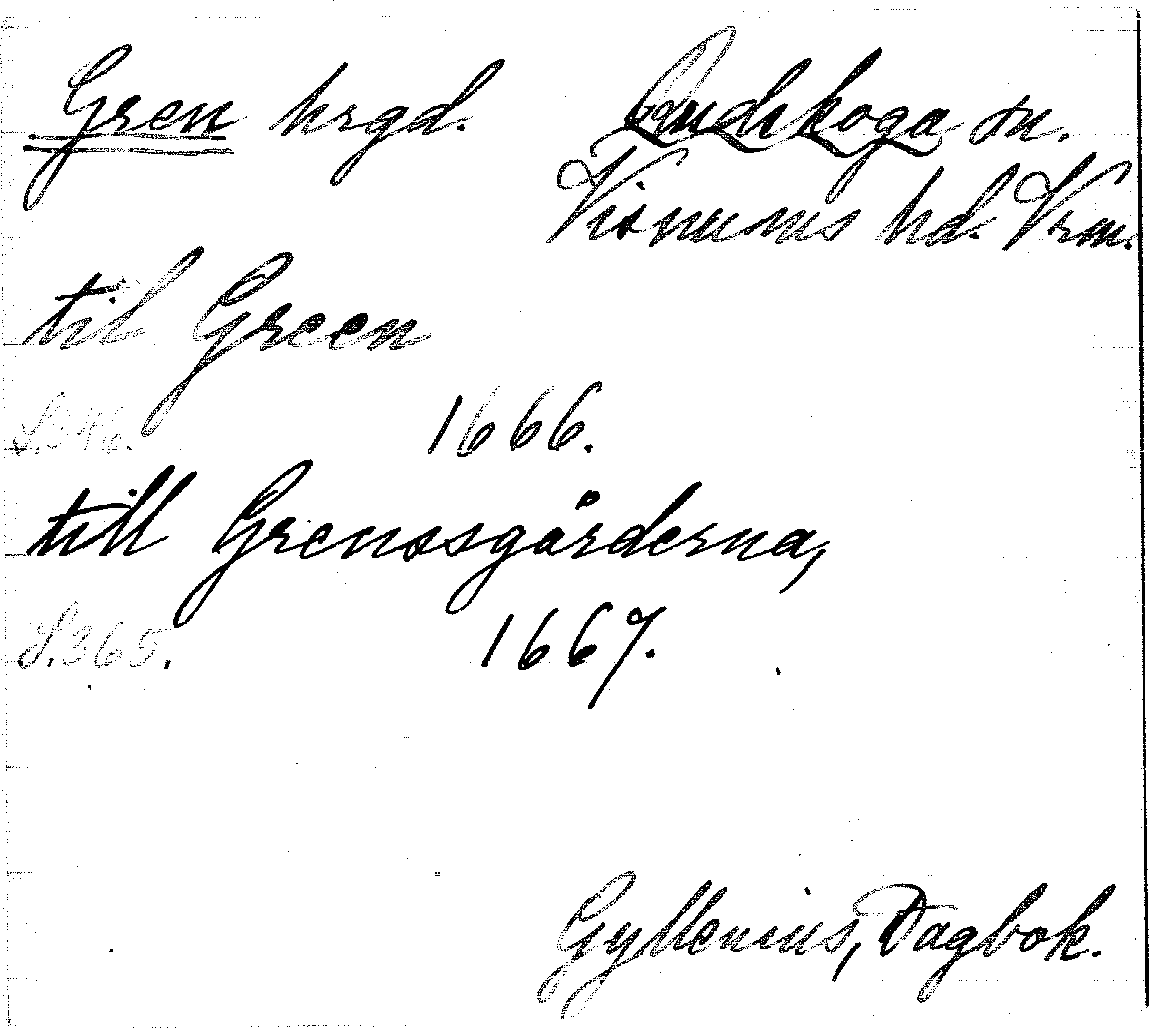 Gren hrgd. Rudskoga sn.
Visnums hd. Vrm.
til Green
S. 346. 1666.
till Grensgårderna,
S. 365. 1667.
Gyllenius, Dagbok.